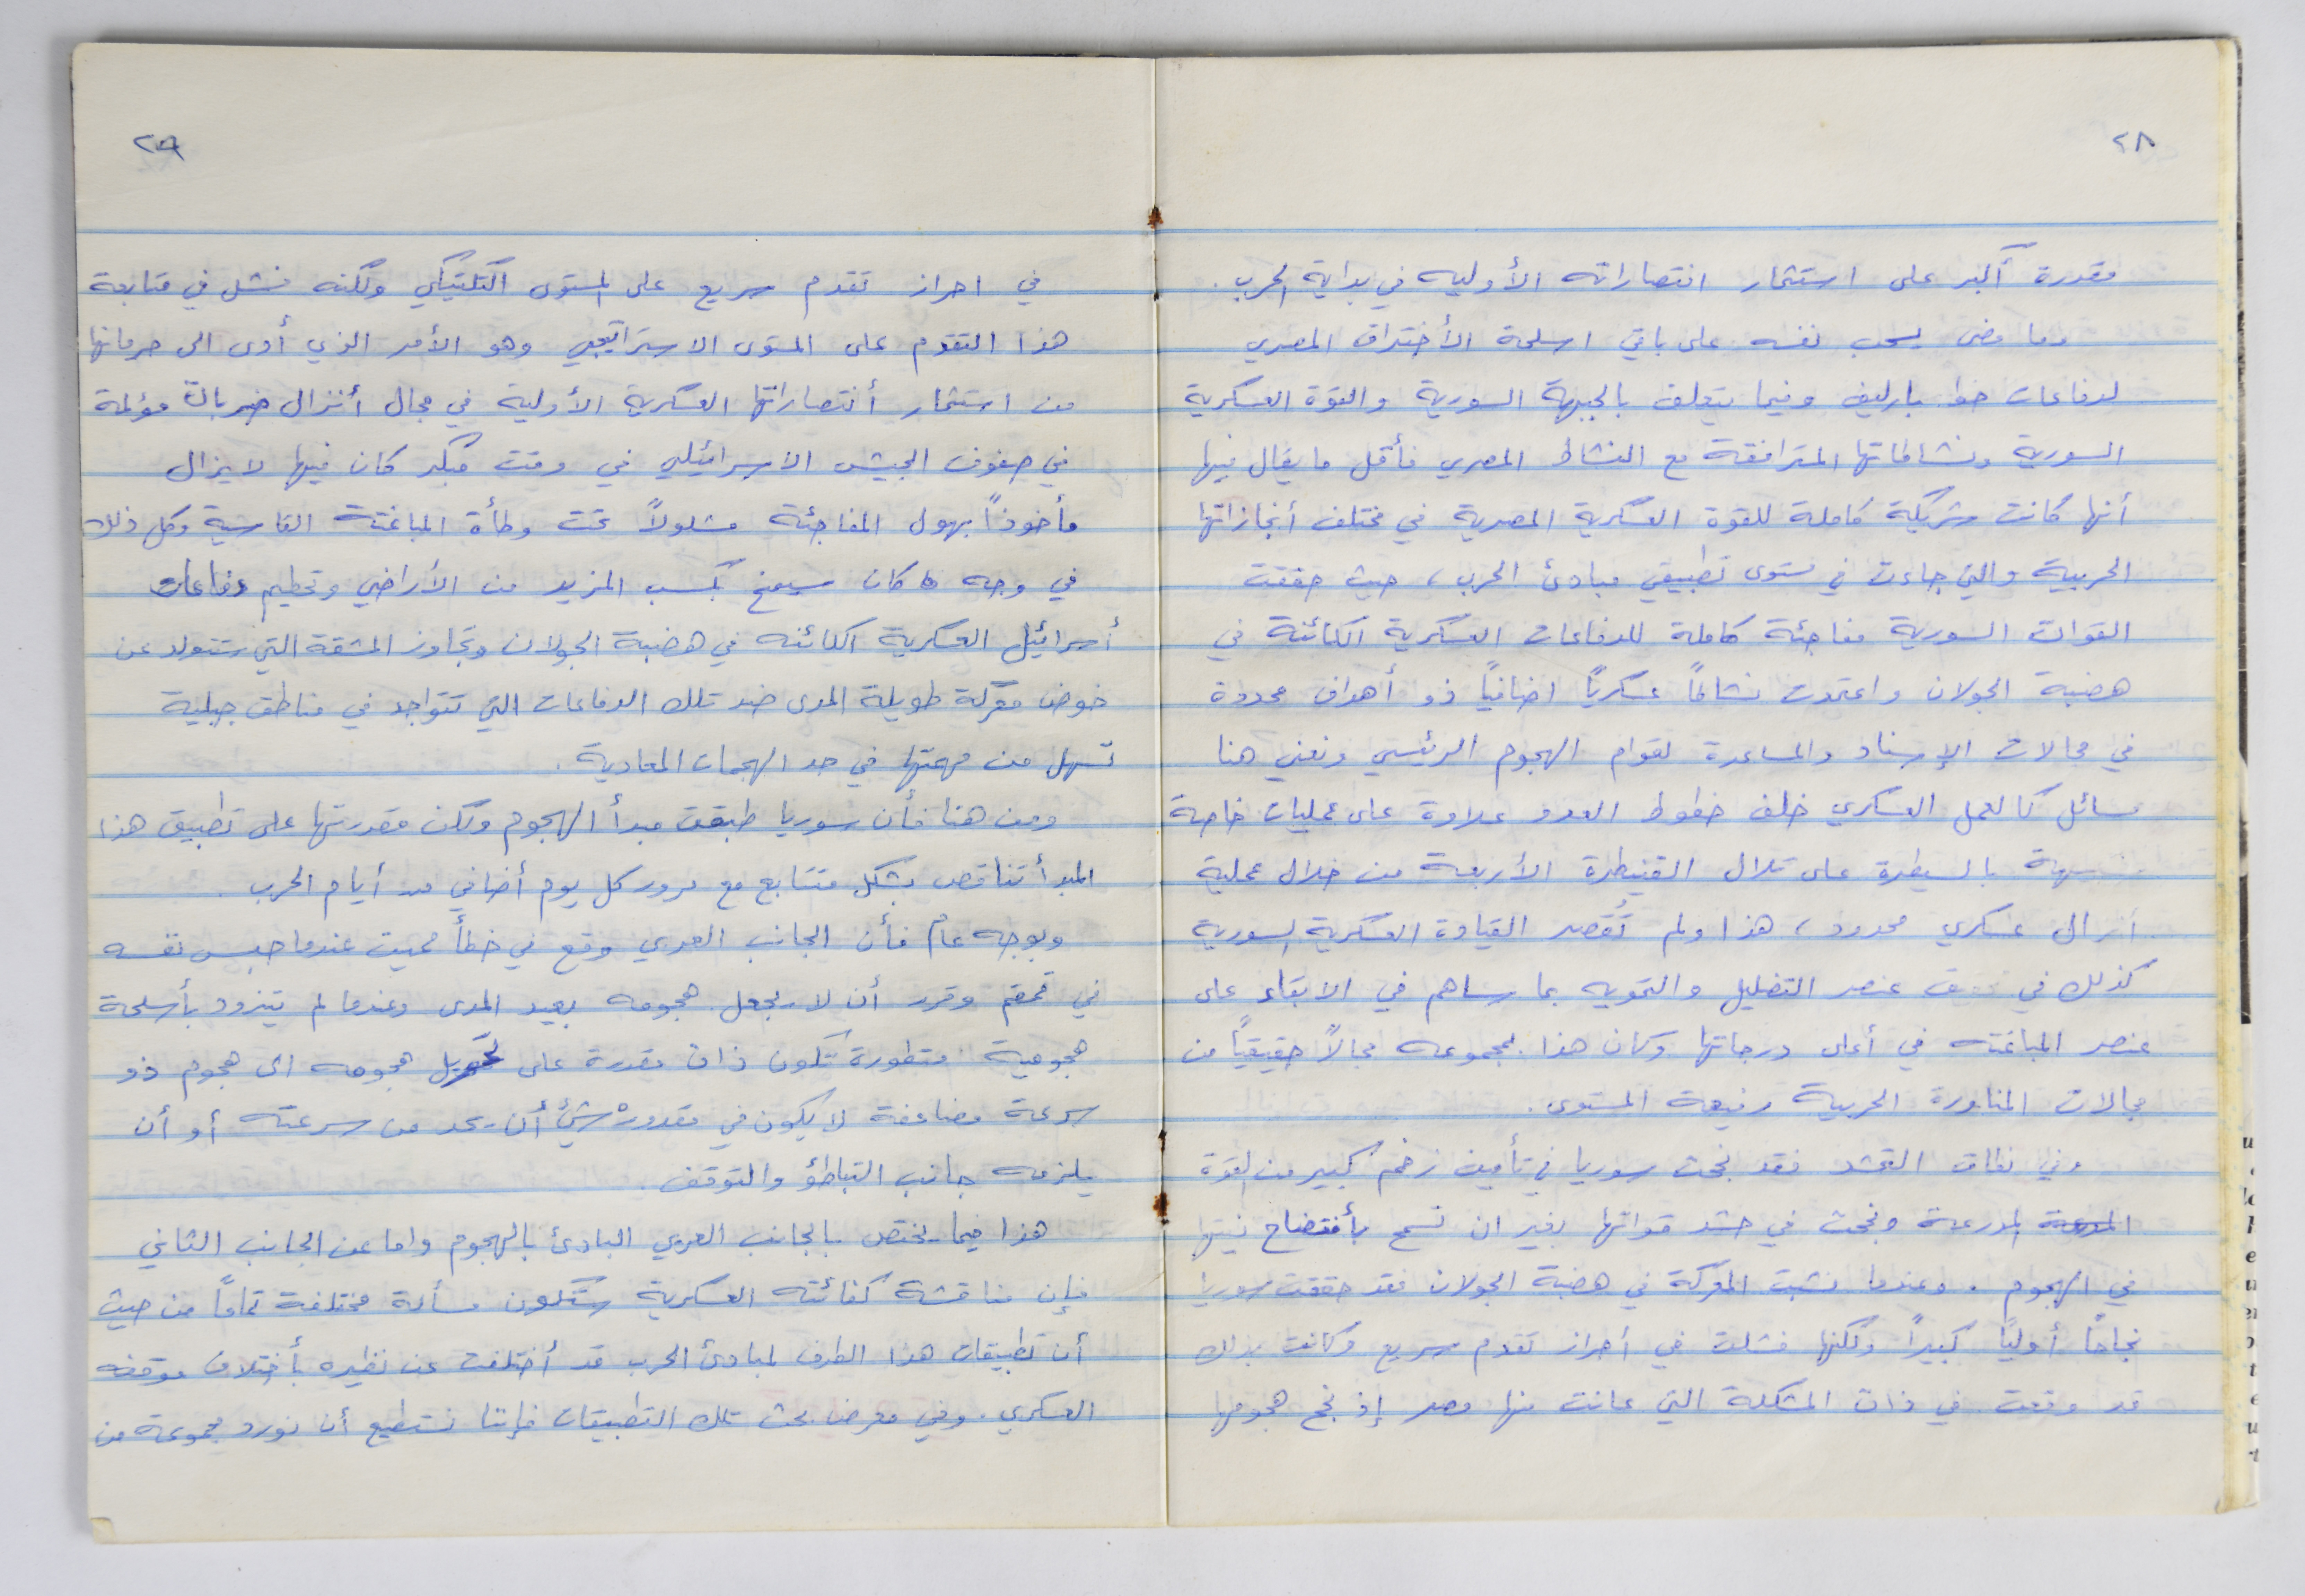 ٢٨
مقدرة أكبر على استثمار انتصاراته الأوليه في بداية الحرب.
وما مضى يسحب نفسه على باقي اسلحة الأختراق المصري
لدفاعات خط بارليف وفيما يتعلق بالجبهة السورية والقوة العسكرية
السورية ونشاطاتها المترافقة مع النشاط المصري فأقل ما يقال فيها
أنها كانت شريكة كاملة للقوة العسكرية المصرية في مختلف أنجازاتها
الحربية والتي جاءت في مستوى تطبيقي مبادئ الحرب، حيث حققت
القوات السورية مفاجئة كاملة للدفاعات العسكرية الكائنة في
هضبة الجولان واعتمدت نشاطاً عسكرياً اضافياً ذو أهداف محددة
في مجالات الإسناد والمساعدة لقوام الهجوم الرئيسي ونعني هنا
مسائل كالعمل العسكري خلف خطوط العدو علاوة على عمليات خاصة
بالسيطرة على تلال القنيطرة الأربعة من خلال عملية
أنزال عسكري محدود، هذا ولم تُقصر القيادة العسكرية السورية
كذلك في عنصر التضليل والتمويه بما ساهم في الابقاء على
عنصر المباغته في أعلى درجاتها وكان هذا بمجموعه مجالاً حقيقياً من
مجالات المناورة الحربية رفيعة المستوى.
وفي نطاق التحشد فقد نجحت سوريا في تأمين زخم كبير من القوة
المدرعة ونجحت في حشد قواتها بغير ان تسمح بأفتضاح نيتها
في الهجوم. وعندما نشبت المعركة في هضبة الجولان فقد حققت سوريا
نجاحاً أولياً كبيراً ولكنها فشلت في أحراز تقدم سريع وكانت بذلك
قد وقعت في ذات المشكلة التي عانت منها مصر إذ نجح هجومها
٢٩
في احراز تقدم سريع على المستوى التكتيكي ولكنه فشل في متابعة
هذا التقدم على المستوى الاستراتيجي وهو الأمر الذي أدى الى حرمانها
من استثمار أنتصاراتها العسكرية الأولية في مجال أنزال ضربات مؤلمة
في صفوف الجيش الاسرائيلي في وقت مبكر كان فيها لا يزال
مأخوذاً بهول المفاجئة مشلولاً تحت وطأة المباغتة القاسية وكل ذلك
في وجه ما كان سيسمح بكسب المزيد من الأراضي وتحطيم دفاعات
أسرائيل العسكرية الكائنه في هضبة الجولان وتجاوز المشقة التي ستتولد عن
خوض معركة طويلة المدى ضد تلك الدفاعات التي تتواجد في مناطق جبلية
تسهل من مهمتها في صد الهجمات المعادية.
ومن هنا فأن سوريا طبقت مبدأ الهجوم ولكن مقدرتها على تطبيق هذا
المبدأ تناقص بشكل متتابع مع مرور كل يوم أضافي من أيام الحرب.
وبوجه عام فأن الجانب العربي وقع في خطأ مميت عندما حبس نفسه
في قمقم وقرر أن لا يجعل هجومه بعيد المدى وعندما لم يتزود بأسلحة
هجومية متطورة تكون ذات مقدرة على تحويل هجومه الى هجوم ذو
سرعة مضاعفة لا يكون في مقدور شيئ أن يحد من سرعته أو أن
يلزمه جانب التباطؤ والتوقف.
هذا فيما يختص بالجانب العربي البادئ بالهجوم واما عن الجانب الثاني
فإن مناقشة كفائته العسكرية ستكون مسألة مختلفة تماماً من حيث
أن تطبيقات هذا الطرف لمبادئ الحرب قد أختلفت عن نظيره بأختلاف موقفه
العسكري. وفي معرض بحث تلك التطبيقات فإننا نستطيع أن نورد مجموعة من